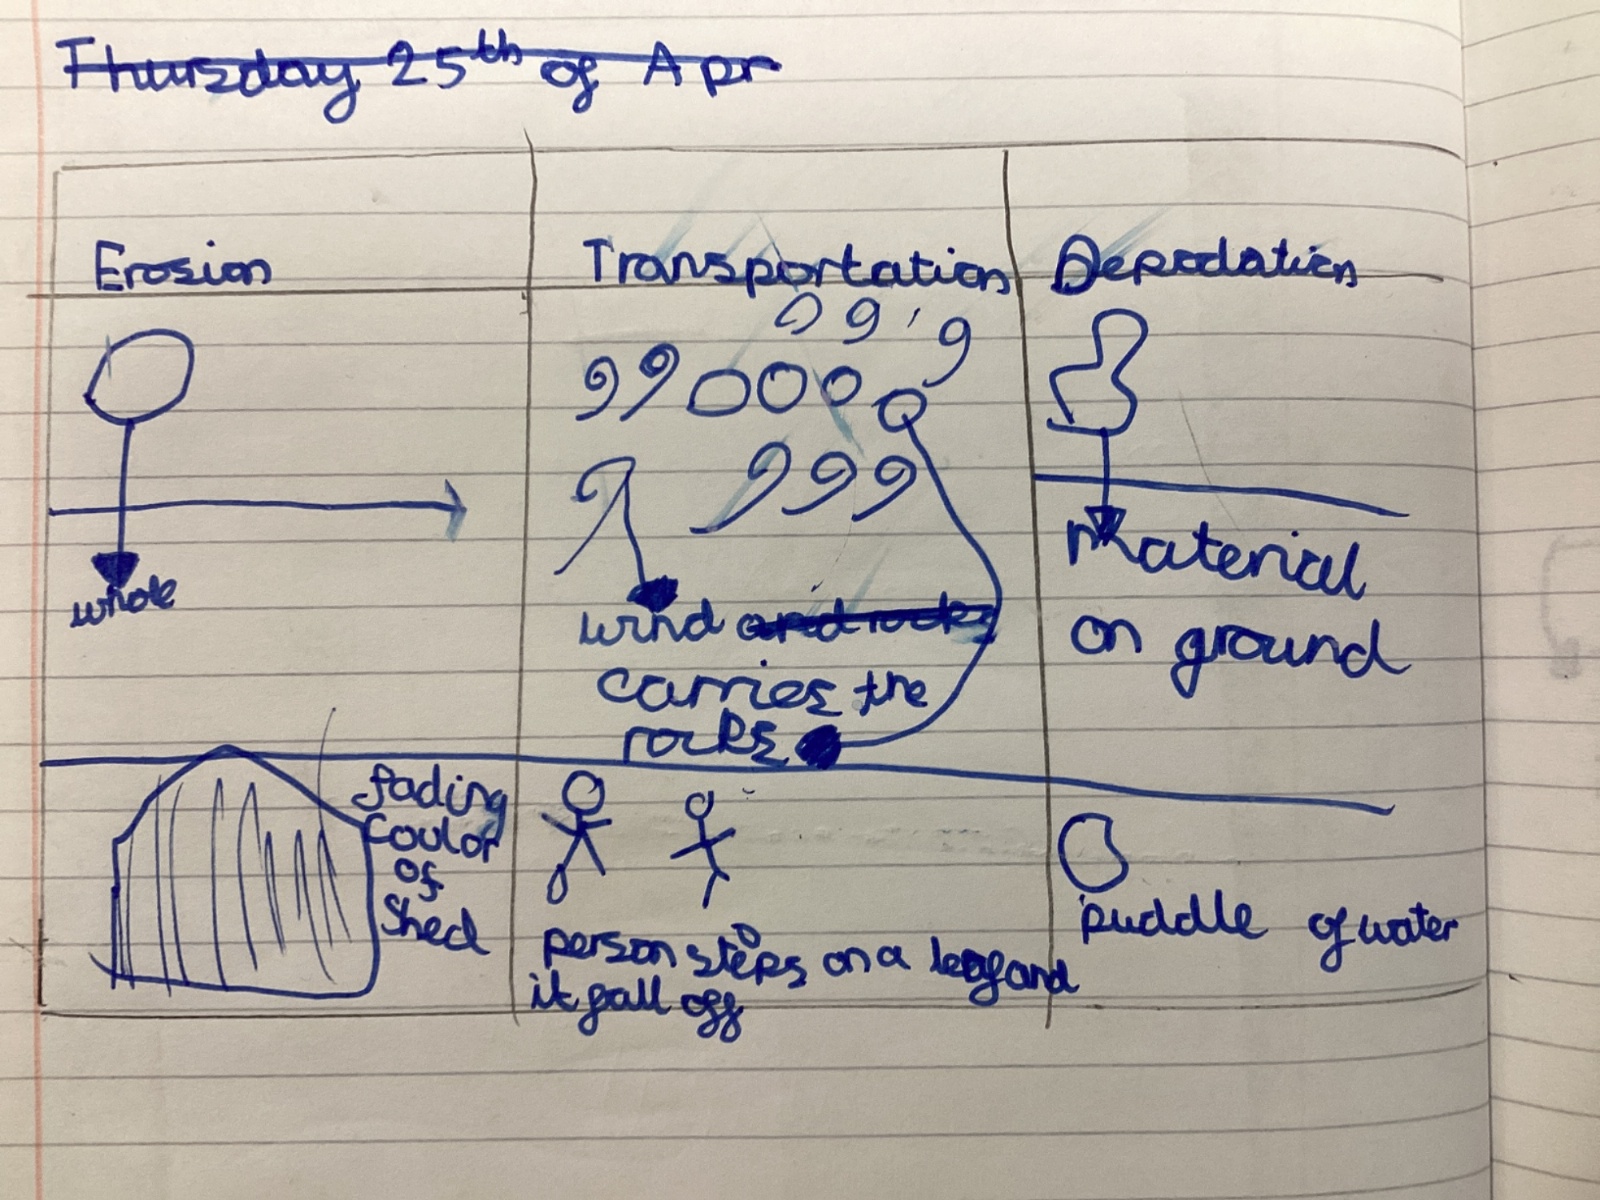 Thursday 25th of Apr
Erosion
Transportation
Depodation
whole
wind and rocks
carries the
rocks
Material
on ground
fading
coulor
of
shed
person steps on a leaf and
it fall off
puddle of water